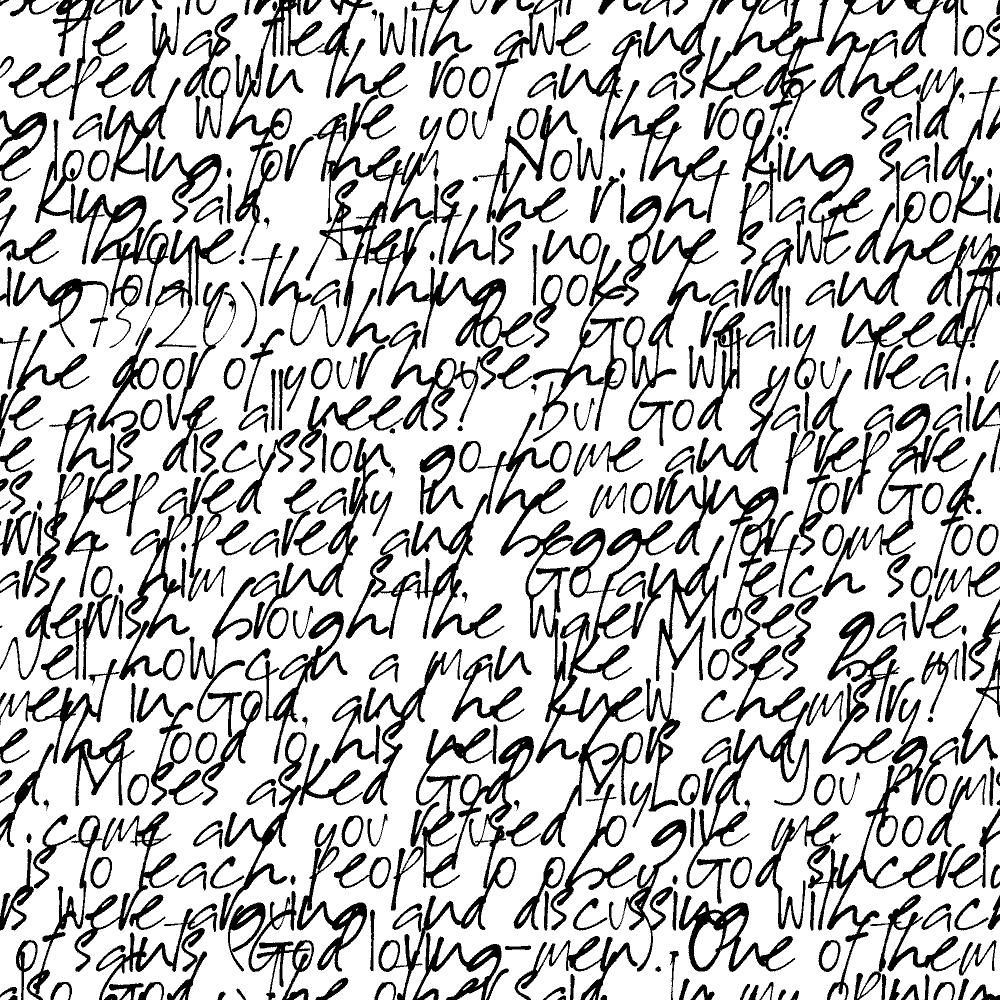 He was filled with awe and he had los
peeped down the roof and asked them,
ng, and who are you on the roof? said th
e looking for them. Now, the king said,
king said, Is this the right place looki
he throne? After this no one saw Edhem
ing totally, that thing looks hard and diff
(75/20) What does God really need?
the door of your house, how will you treat
re above all needs? But God said again
e this discussion, go home and prepare
es. prepared early in the morning for God.
rwish appeared and begged for some foo
ars to him and said, Go and fetch some
derwish brought the water Moses gave
Well, how can a man like Moses be mis
ment in Gold, and he knew chemistry?
e the food to his neighbors and began
ed, Moses asked God, My Lord, You promi
d come and you refused to give me food
is to teach people to obey God sincerel
rs were arguing and discussing with each
of saints (God loving-men). One of them
also God the other said in my opinion